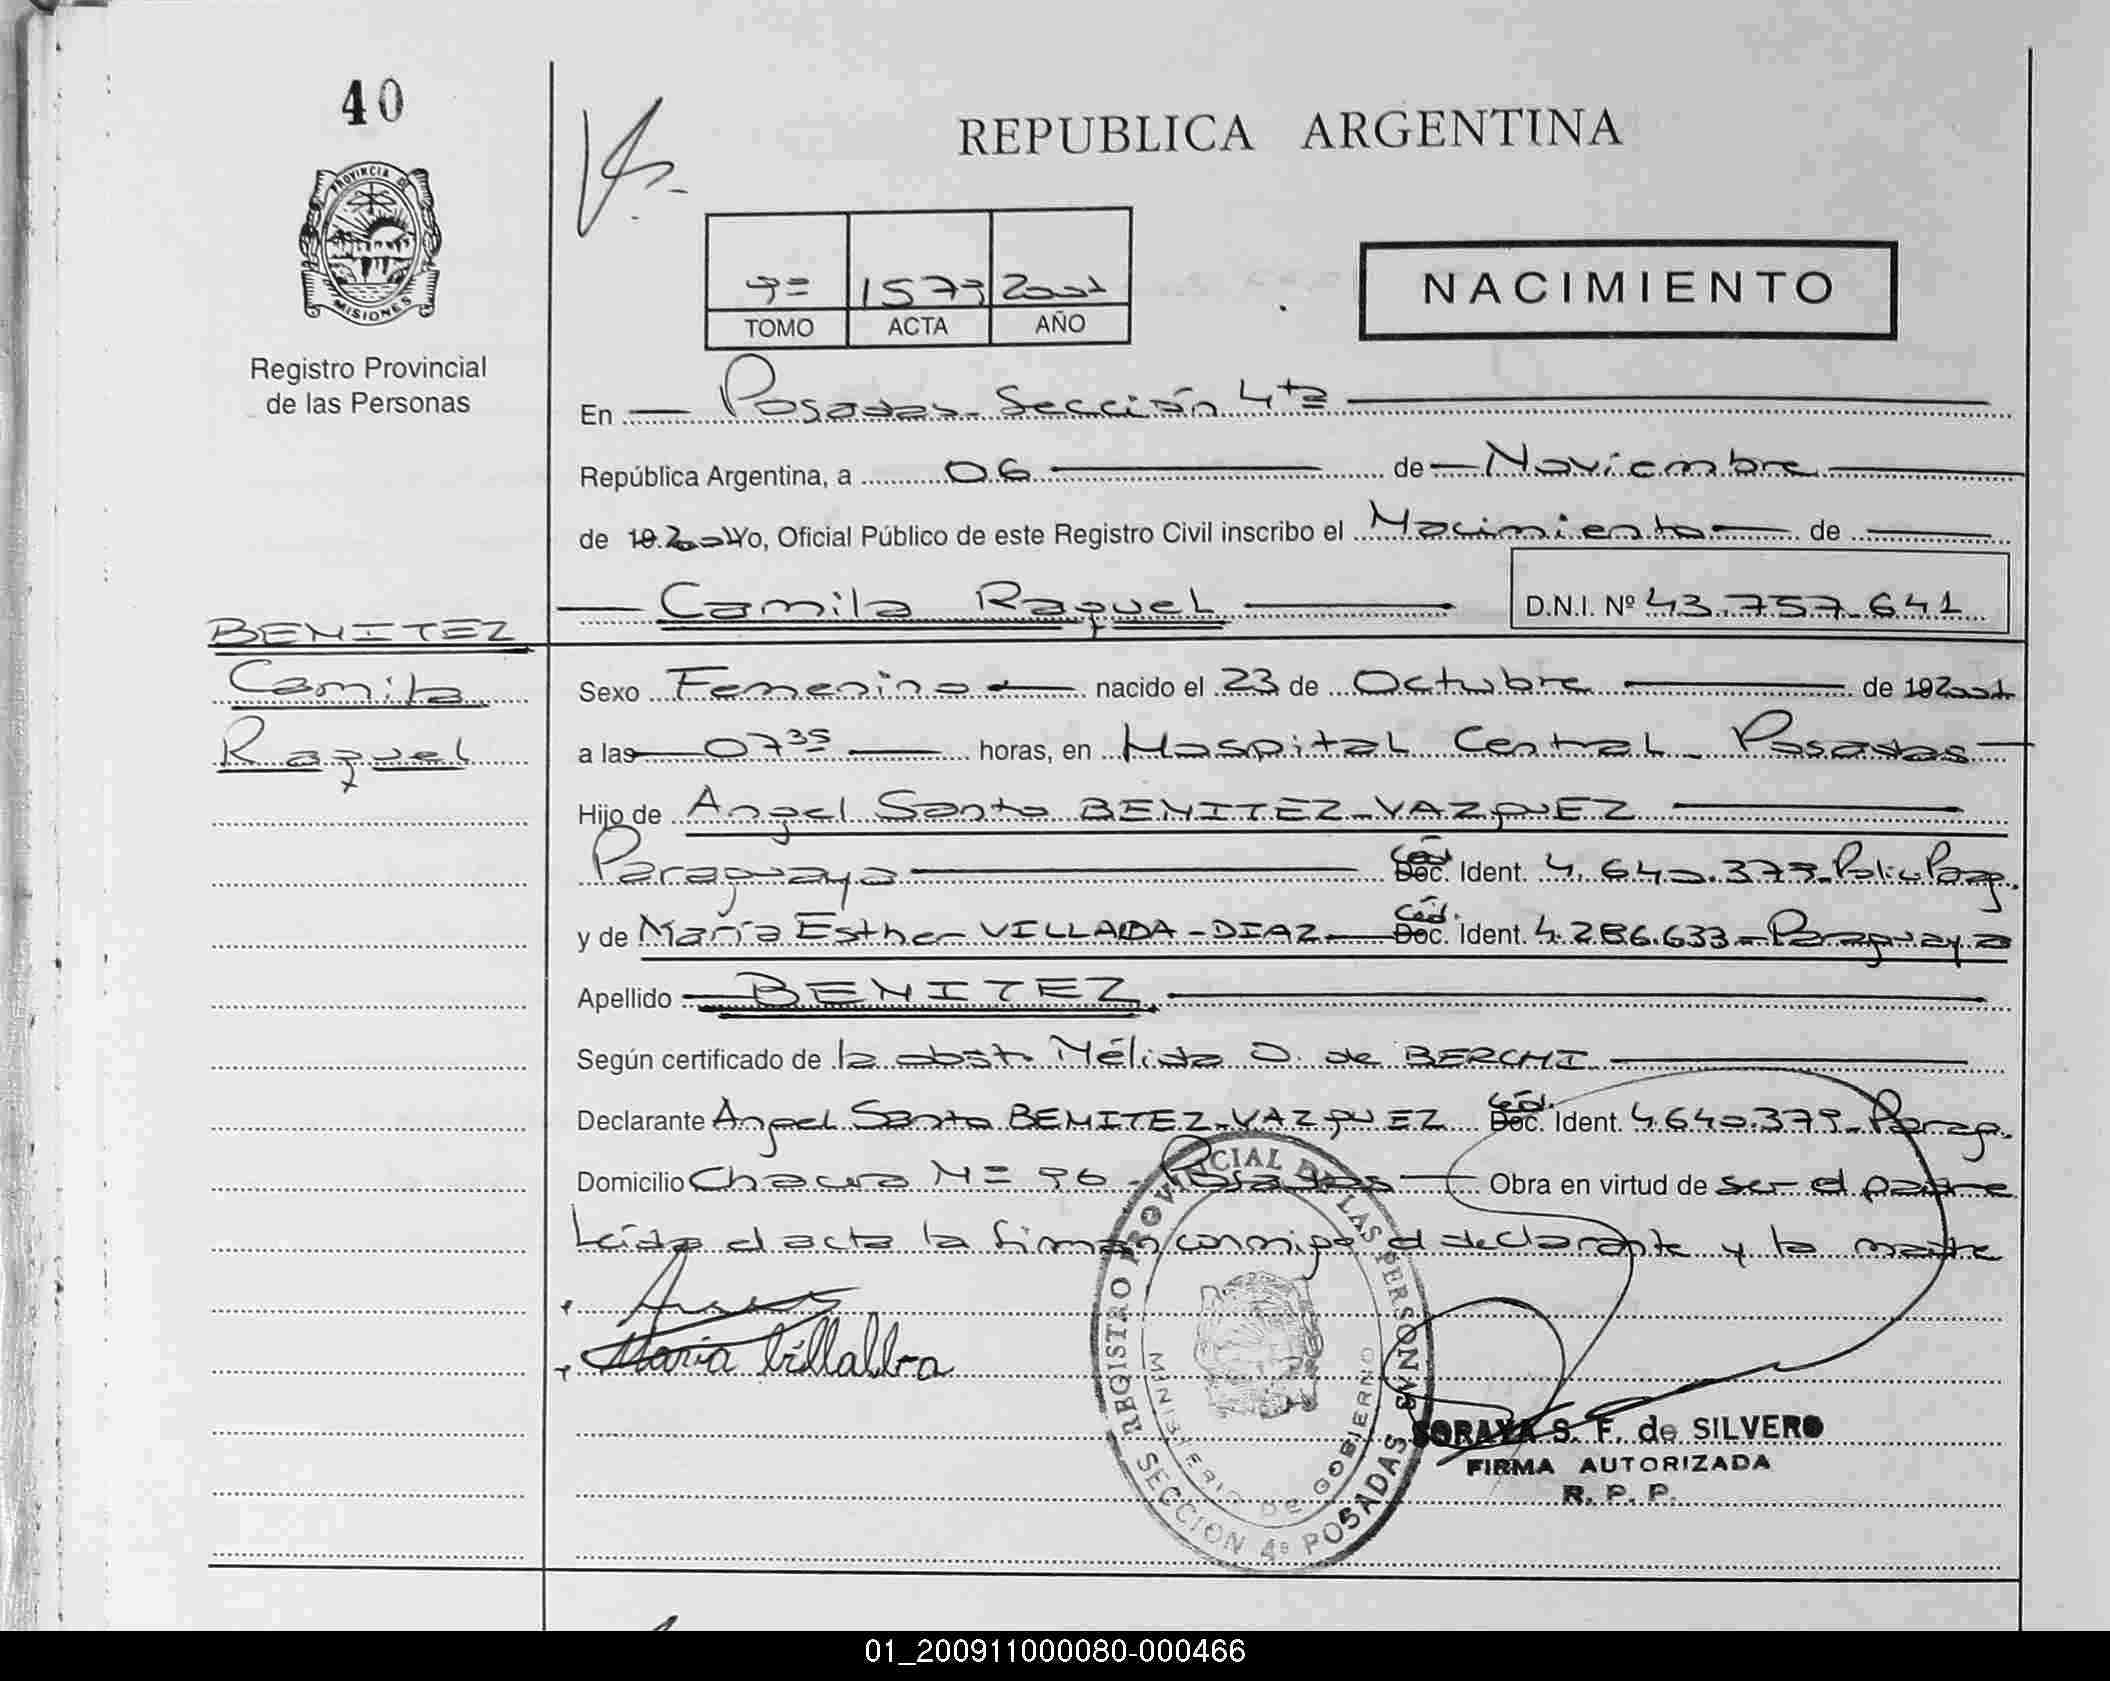 40
REPUBLICA ARGENTINA
PROVINCIA DE
MISIONES
Registro Provincial
de las Personas
1573 2001
TOMO ACTA AÑO
NACIMIENTO
En Posadas - Sección 4ta
República Argentina, a 06 de Noviembre
de 19 2001 Yo, Oficial Público de este Registro Civil inscribo el Nacimiento de
Camila Raquel D.N.I. Nº 43.757.641
BENITEZ
Camila
Raquel
Sexo Femenino nacido el 23 de Octubre de 19 2001
a las 07 35 horas, en Hospital Central - Posadas
Hijo de Angel Santo BENITEZ - VAZQUEZ
Paraguaya Céd. Doc. Ident. 4.640.379 - Polic. Parag.
y de María Esther VILLALBA - DIAZ Céd. Doc. Ident. 4.286.633 - Paraguaya
Apellido BENITEZ
Según certificado de la obst. Nélida O. de BERCHI
Declarante Angel Santo BENITEZ - VAZQUEZ Céd. Doc. Ident. 4.640.379 - Parag.
Domicilio Chacra Nº 96 - Posadas Obra en virtud de ser el padre
Leída el acta la firman conmigo el declarante y la madre
María Villalba
REGISTRO PROVINCIAL DE LAS PERSONAS
MINISTERIO DE GOBIERNO
SECCION 4ª POSADAS
SORAYA S. F. de SILVERO
FIRMA AUTORIZADA
R. P. P.
01_200911000080-000466